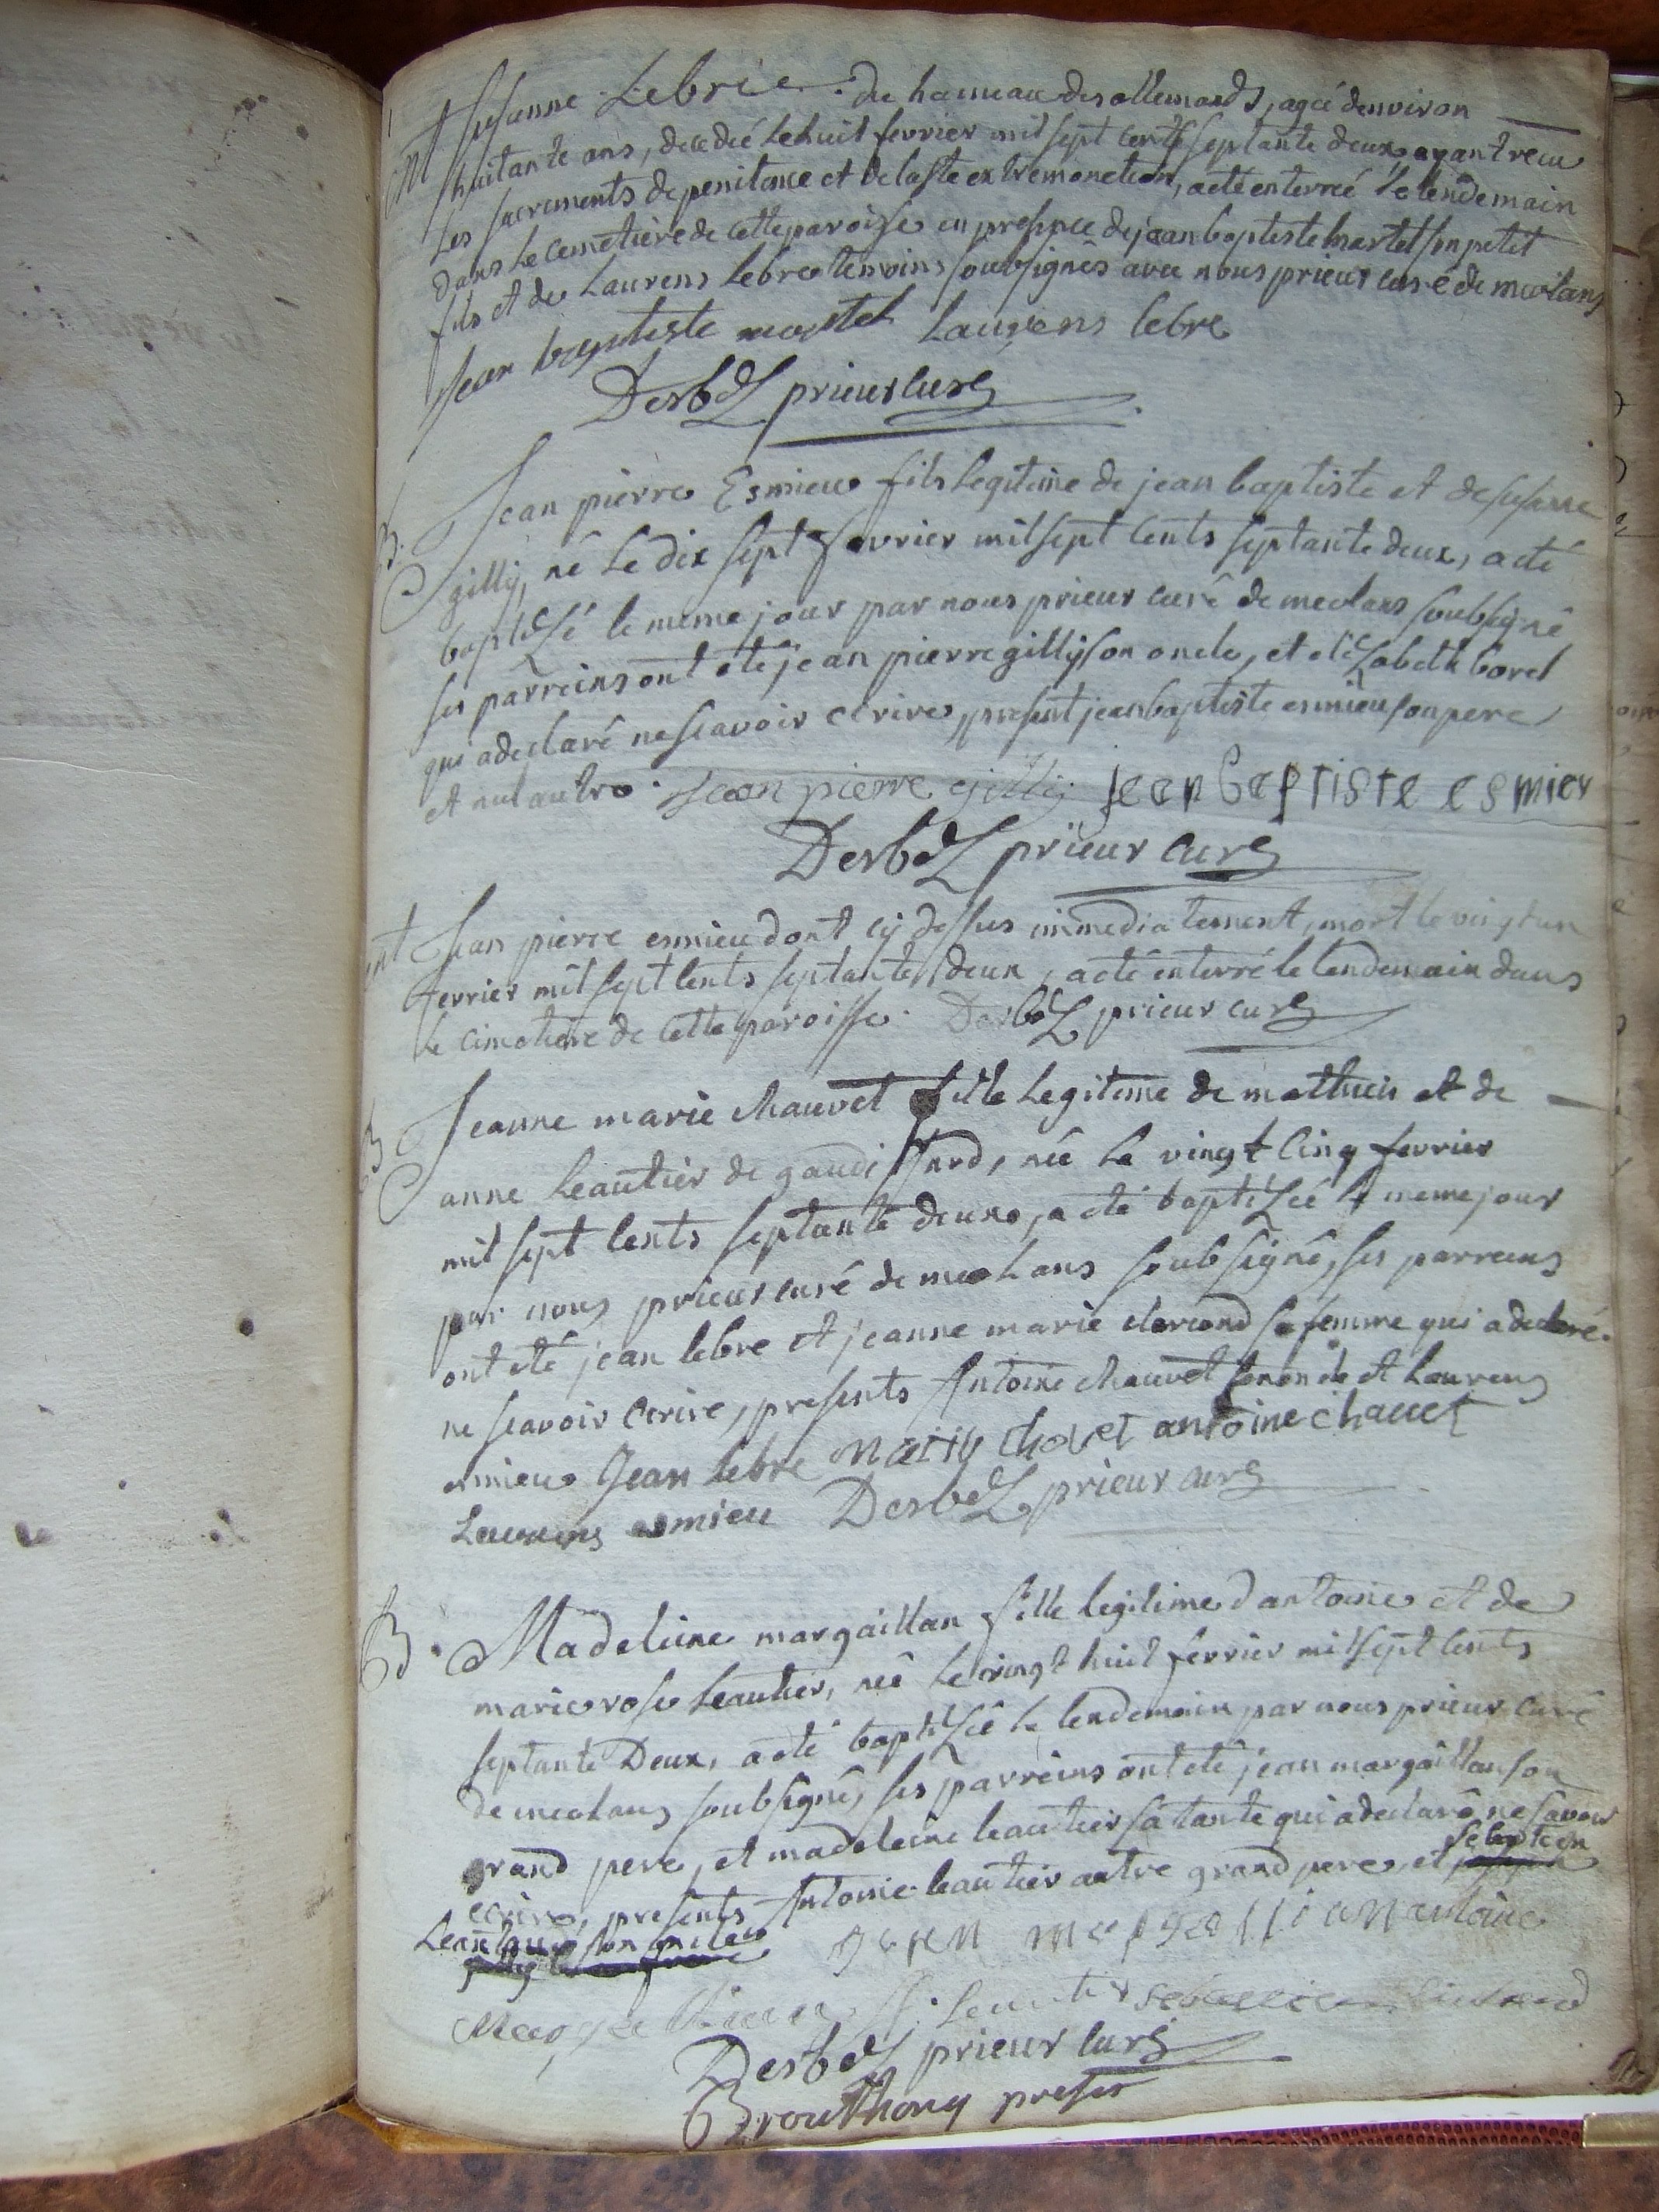 Ent Susanne Lebre du hameau des allemands, agée denviron
huitante ans, decedée le huit fevrier mil sept cents septante deux ayant recu
Les sacrements de penitence et de la ste extremonction, a eté enterrée le lendemain
dans le cemetiere de cette paroisse en presence de jean baptiste martel son petit
fils et de Laurens lebre temoins soubsignés avec nous prieur curé de meolans
jean baptiste martel Laurens lebre
Derbez prieur curé
B. Jean pierre Esmieu fils legitime de jean baptiste et de susanne
gilly, né le dix sept fevrier mil sept cents septante deux, a eté
baptizé le meme jour par nous prieur curé de meolans soubsigné
ses parreins ont eté jean pierre gilly son oncle, et elizabeth borel
qui a declaré ne scavoir ecrire, present jean baptiste esmieu son pere
et nul autre. jean pierre gilly jean baptiste esmieu
Derbez prieur curé
ent Jean pierre esmieu dont cy dessus immediatement, mort le vingt un
fevrier mil sept cents septante deux, a eté enterré le lendemain dans
le cimetiere de cette paroisse. Derbez prieur curé
B Jeanne marie Chauvet fille legitime de mathieu et de
anne Leautier de gaudissard, née le vingt cinq fevrier
mil sept cents septante deux, a eté baptizée le meme jour
par nous prieur curé de meolans soubsigné, ses parreins
ont eté jean lebre et jeanne marie clariond sa femme qui a declaré
ne scavoir ecrire, presents Antoine Chauvet son oncle et Laurens
esmieu Jean lebre chovet antoine chauet
Laurens esmieu Derbez prieur curé
B. Madeleine margaillan fille legitime dantoine et de
marie rose Leautier, née le vingt huit fevrier mil sept cents
septante Deux, a eté baptizée le lendemain par nous prieur curé
de meolans soubsigné, ses parreins ont eté jean margaillan son
grand pere, et madeleine leautier sa tante qui a declaré ne savoir
ecrire, presents Antoine leautier autre grand pere, et sebastien
son oncle antoine
Derbez prieur curé